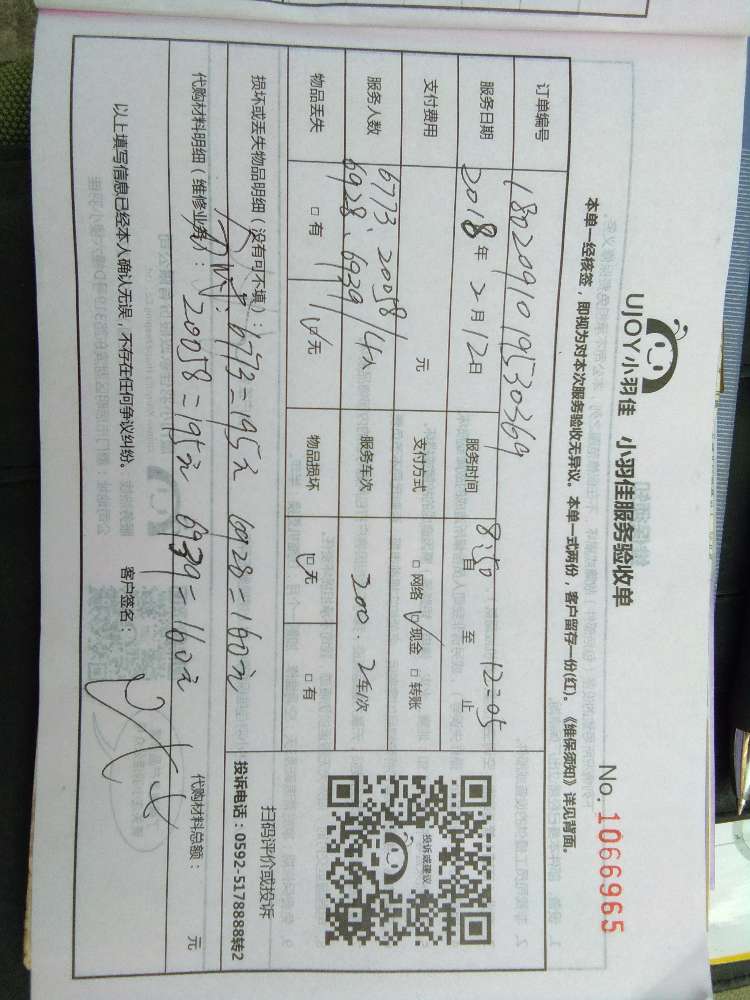 UJOY小羽佳 小羽佳服务验收单
No. 1066965
本单一经核签，即视为对本次服务验收无异议。本单一式两份，客户留存一份(红)。《维保须知》详见背面。
订单编号 1802091019530369
服务日期 2018年 2月12日 服务时间 8:50 自 至 12:05 止
支付费用 元 支付方式 □网络 ☑现金 □转账
6773 20058
服务人数 6928、6939/4人 服务车次 200.2车/次
物品丢失 □有 ☑无 物品损坏 ☑无 □有
投诉或建议
扫码评价或投诉
投诉电话：0592-5178888转2
损坏或丢失物品明细（没有可不填）：
6773=195元 6928=160元
代购材料明细（维修业务）：
20058=195元 6939=160元
代购材料总额： 元
以上填写信息已经本人确认无误，不存在任何争议纠纷。 客户签名：